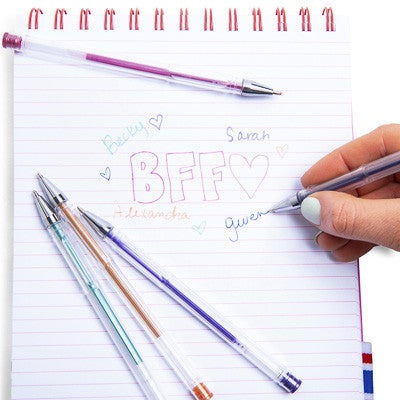 Becky Sarah
BFF♡
Alexandra gwen